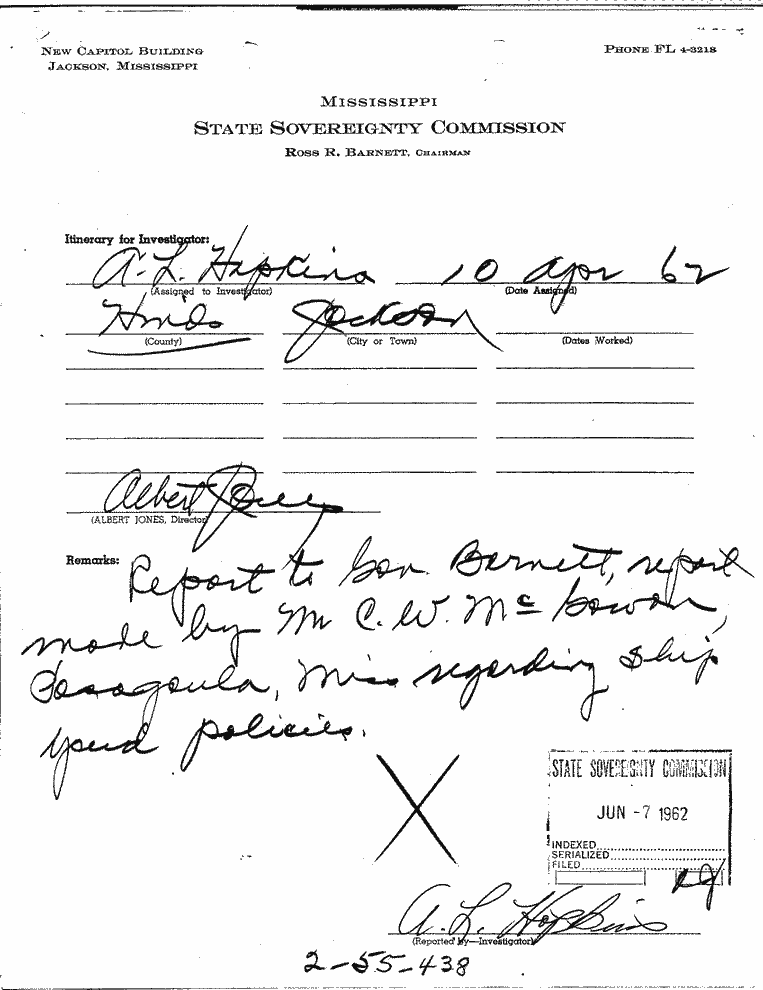 NEW CAPITOL BUILDING
JACKSON, MISSISSIPPI
PHONE FL 4-3218
MISSISSIPPI
STATE SOVEREIGNTY COMMISSION
ROSS R. BARNETT, CHAIRMAN
Itinerary for Investigator:
A. L. Hopkins 10 Apr 62
(Assigned to Investigator) (Date Assigned)
Hinds Jackson
(County) (City or Town) (Dates Worked)
Albert Jones
(ALBERT JONES, Director)
Remarks: Report to Gov. Barnett, report
made by Mr C. W. McGowan,
Pascagoula, Miss regarding ship
yard policies.
STATE SOVEREIGNTY COMMISSION
JUN -7 1962
INDEXED
SERIALIZED
FILED
A. L. Hopkins
(Reported by—Investigator)
2-55-438